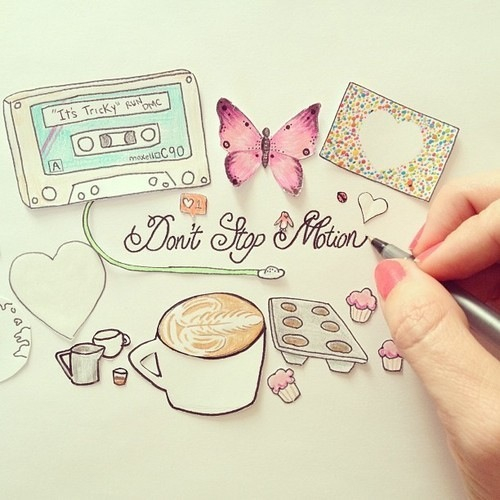 "It's Tricky" RUN DMC
A
maxellaC90
1
Don't Stop Motion